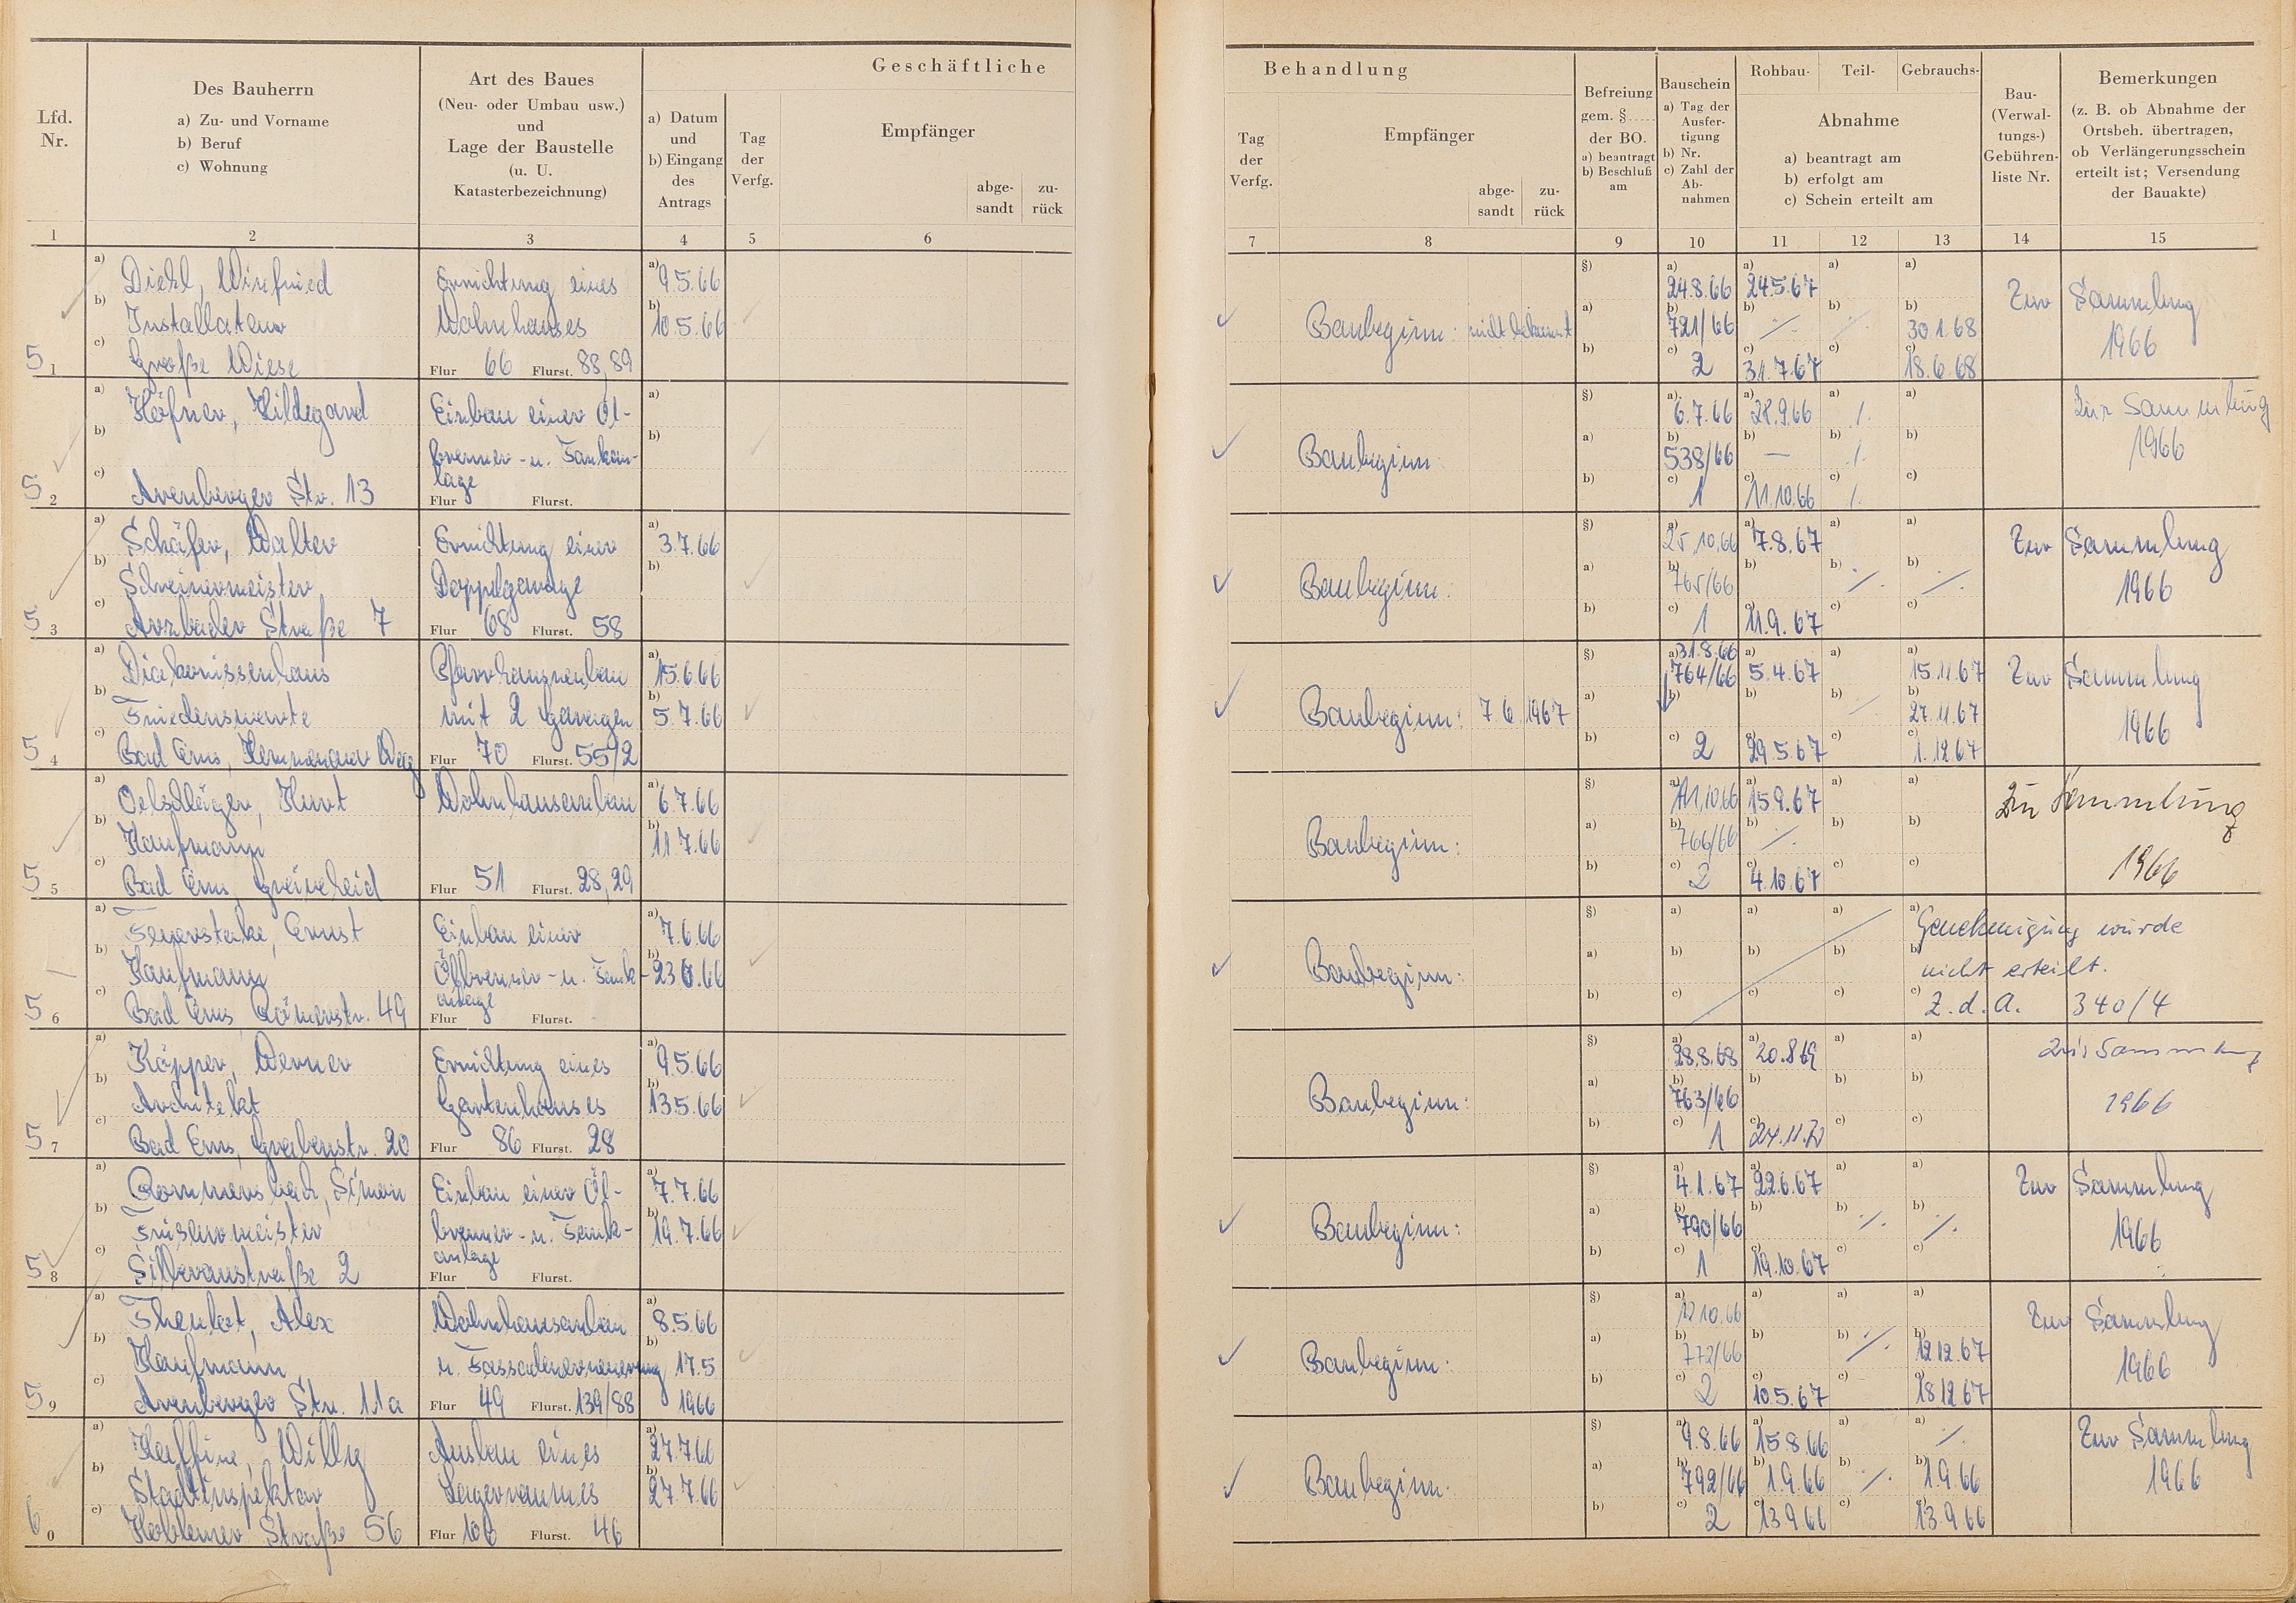 Geschäftliche
Lfd. Nr.
Des Bauherrn
a) Zu- und Vorname
b) Beruf
c) Wohnung
Art des Baues
(Neu- oder Umbau usw.)
und
Lage der Baustelle
(u. U.
Katasterbezeichnung)
a) Datum
und
b) Eingang
des
Antrags
Tag
der
Verfg.
Empfänger
abge-
sandt
zu-
rück
1 2 3 4 5 6
Behandlung
Tag
der
Verfg.
Empfänger
abge-
sandt
zu-
rück
Befreiung
gem. §
der BO.
a) beantragt
b) Beschluß
am
Bauschein
a) Tag der
Ausfer-
tigung
b) Nr.
c) Zahl der
Ab-
nahmen
Rohbau- Teil- Gebrauchs-
Abnahme
a) beantragt am
b) erfolgt am
c) Schein erteilt am
Bau-
(Verwal-
tungs-)
Gebühren-
liste Nr.
Bemerkungen
(z. B. ob Abnahme der
Ortsbeh. übertragen,
ob Verlängerungsschein
erteilt ist; Versendung
der Bauakte)
7 8 9 10 11 12 13 14 15
a) Diehl, Winfried Errichtung eines a) 9.5.66 §) a) 24.8.66 a) 24.5.67 a) a) Zur Sammlung
b) Installateur Wohnhauses b) 10.5.66 Baubeginn: nicht bekannt a) b) 721/66 b) ./. b) ./. b) 30.1.68 1966
51 c) Große Wiese Flur 66 Flurst. 88, 89 b) c) 2 c) 31.7.67 c) c) 18.6.68
a) Höfner, Hildegard Einbau einer Öl- a) §) a) 6.7.66 a) 28.9.66 a) ./. a) Zur Sammlung
b) brenner- u. Tankan- b) Baubeginn: a) b) 538/66 b) — b) ./. b) 1966
lage
52 c) Arenberger Str. 13 Flur Flurst. b) c) 1 c) 11.10.66 c) ./. c)
a) Schäfer, Walter Errichtung einer a) 3.7.66 §) a) 25.10.66 a) 7.8.67 a) a) Zur Sammlung
b) Schreinermeister Doppelgarage b) Baubeginn: a) b) 765/66 b) b) ./. b) ./. 1966
53 c) Arzbacher Straße 7 Flur 68 Flurst. 58 b) c) 1 c) 11.9.67 c) c)
a) Diakonissenhaus Pfarrhausneubau a) 15.6.66 §) a) 31.8.66 a) 5.4.67 a) a) 15.11.67 Zur Sammlung
b) Friedenswarte mit 2 Garagen b) 5.7.66 Baubeginn: 7.6.1967 a) b) 764/66 b) b) ./. b) 27.11.67 1966
54 c) Bad Ems, Kemmenauer Weg Flur 70 Flurst. 55/2 b) c) 2 c) 29.5.67 c) c) 1.12.67
a) Oelschläger, Kurt Wohnhausneubau a) 6.7.66 §) a) 11.10.66 a) 15.9.67 a) a) Zur Sammlung
b) Kaufmann b) 11.7.66 Baubeginn: a) b) 766/66 b) ./. b) b)
55 c) Bad Ems, Flur 51 Flurst. 28, 29 b) c) 2 c) 4.10.67 c) c) 1966
a) Feuerstake, Ernst Einbau einer a) 7.6.66 §) a) a) a) a) Genehmigung wurde
b) Kaufmann Ölbrenner- u. Tank- b) 23.6.66 Baubeginn: a) b) b) b) b) nicht erteilt.
anlage
56 c) Bad Ems, Römerstr. 49 Flur Flurst. b) c) c) c) c) Z.d.A. 340/4
a) Käpper, Werner Errichtung eines a) 9.5.66 §) a) 28.8.68 a) 20.8.69 a) a) Zur Sammlung
b) Architekt Gartenhauses b) 13.5.66 Baubeginn: a) b) 763/66 b) b) b) 1966
57 c) Bad Ems, Grabenstr. 20 Flur 86 Flurst. 28 b) c) 1 c) 24.11.70 c) c)
a) Rommersbach, Simon Einbau einer Öl- a) 7.7.66 §) a) 4.1.67 a) 22.6.67 a) a) Zur Sammlung
b) Friseurmeister brenner- u. Tank- b) 19.7.66 Baubeginn: a) b) 790/66 b) b) ./. b) ./. 1966
anlage
58 c) Silberaustraße 2 Flur Flurst. b) c) 1 c) 19.10.67 c) c)
a) Alex Wohnhausanbau a) 8.5.66 §) a) 12.10.66 a) a) a) Zur Sammlung
b) Kaufmann u. Fassadenerneuerung b) 17.5 Baubeginn: a) b) 772/66 b) b) ./. b) 12.12.67 1966
59 c) Arenberger Str. 11a Flur 49 Flurst. 139/88 1966 b) c) 2 c) 10.5.67 c) c) 18.12.67
a) Willy Ausbau eines a) 27.7.66 §) a) 9.8.66 a) 15.8.66 a) a) ./. Zur Sammlung
b) Stadtinspektor Lagerraumes b) 27.7.66 Baubeginn: a) b) 792/66 b) 1.9.66 b) ./. b) 1.9.66 1966
60 c) Koblenzer Straße 56 Flur 106 Flurst. 46 b) c) 2 c) 13.9.66 c) c) 13.9.66